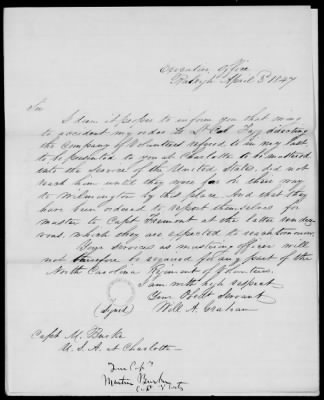 Executive Office
Raleigh April 3d 1847
Sir
I deem it proper to inform you that owing
to accident my order to Lt Col Fagg directing
the Company of Volunteers refered to in my last
to be presented to you at Charlotte to be mustered
into the service of the United States, did not
reach them until they were on their way
to Wilmington by this place And that they
have been ordered to report themselves for
muster to Capt Fremont at the latter rendez
vous, which they are expected to reach tomorrow.
Your services as mustering officer will
not therefore be required for any part of the
North Carolina Regiment of Volunteers.
I am with high respect
Your Obdt Servant
(Signed) Will A. Graham
Capt M. Burke
U.S.A at Charlotte
True Copy
Martin Burke
Capt